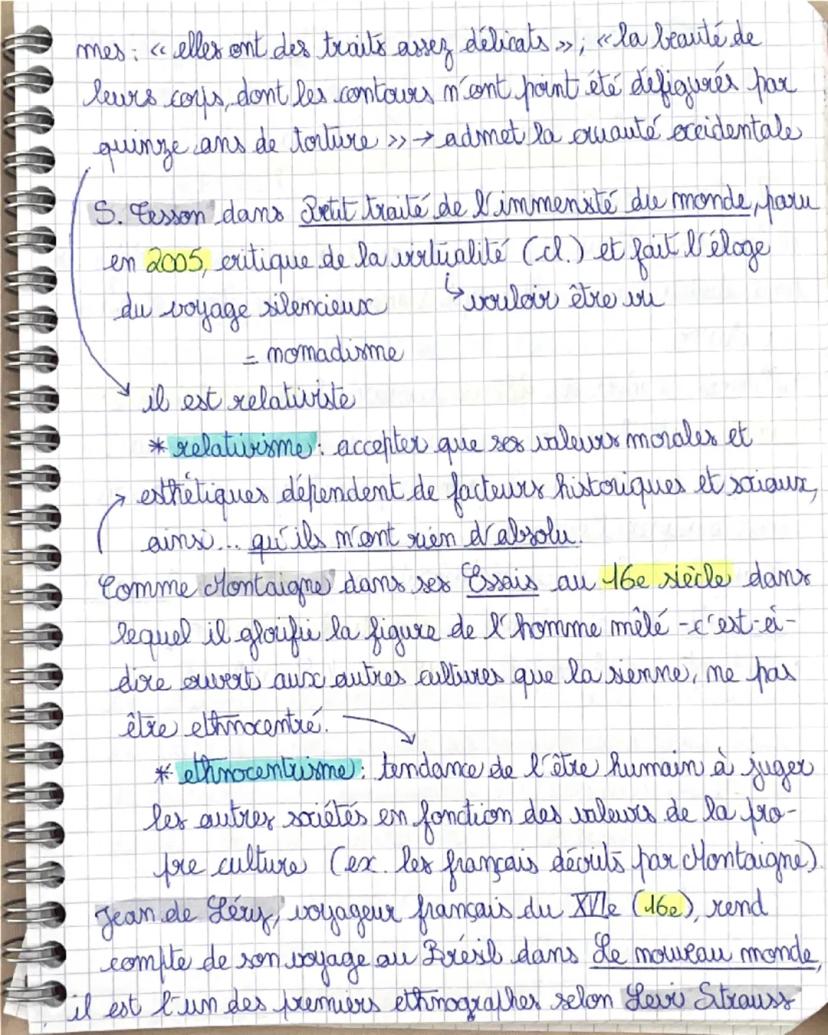 mes : « elles ont des traits assez délicats » ; « la beauté de
leurs corps, dont les contours n'ont point été défigurés par
quinze ans de torture » → admet la cruauté occidentale
S. Tesson dans Petit traité de l'immensité du monde, paru
en 2005, critique de la virtualité (cl.) et fait l'éloge
du voyage silencieux ↳ vouloir être vu
= nomadisme
il est relativiste
* relativisme : accepter que ses valeurs morales et
esthétiques dépendent de facteurs historiques et sociaux,
ainsi... qu'ils n'ont rien d'absolu.
Comme Montaigne dans ses Essais au 16e siècle dans
lequel il glorifie la figure de l'homme mêlé - c'est-à-
dire ouvert aux autres cultures que la sienne, ne pas
être ethnocentré.
* ethnocentrisme : tendance de l'être humain à juger
les autres sociétés en fonction des valeurs de la pro-
pre culture (ex. les français décrits par Montaigne).
Jean de Léry, voyageur français du XVIe (16e), rend
compte de son voyage au Brésil dans Le nouveau monde,
il est l'un des premiers ethnographes selon Levi Strauss